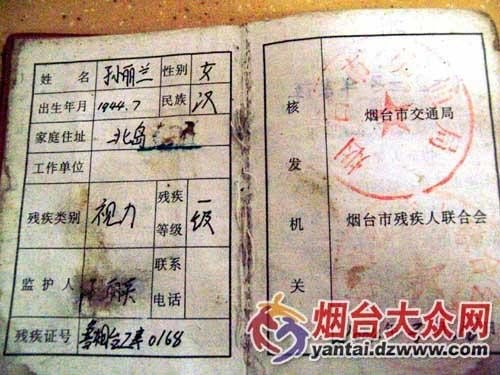 姓 名 孙丽兰 性别 女
出生年月 1944.7 民族 汉
家庭住址 北岛
工作单位
残疾类别 视力 残疾等级 一级
监护人 联系电话
残疾证号 0168
核发机关
烟台市交通局
烟台市残疾人联合会
烟台大众网
yantai.dzwww.com